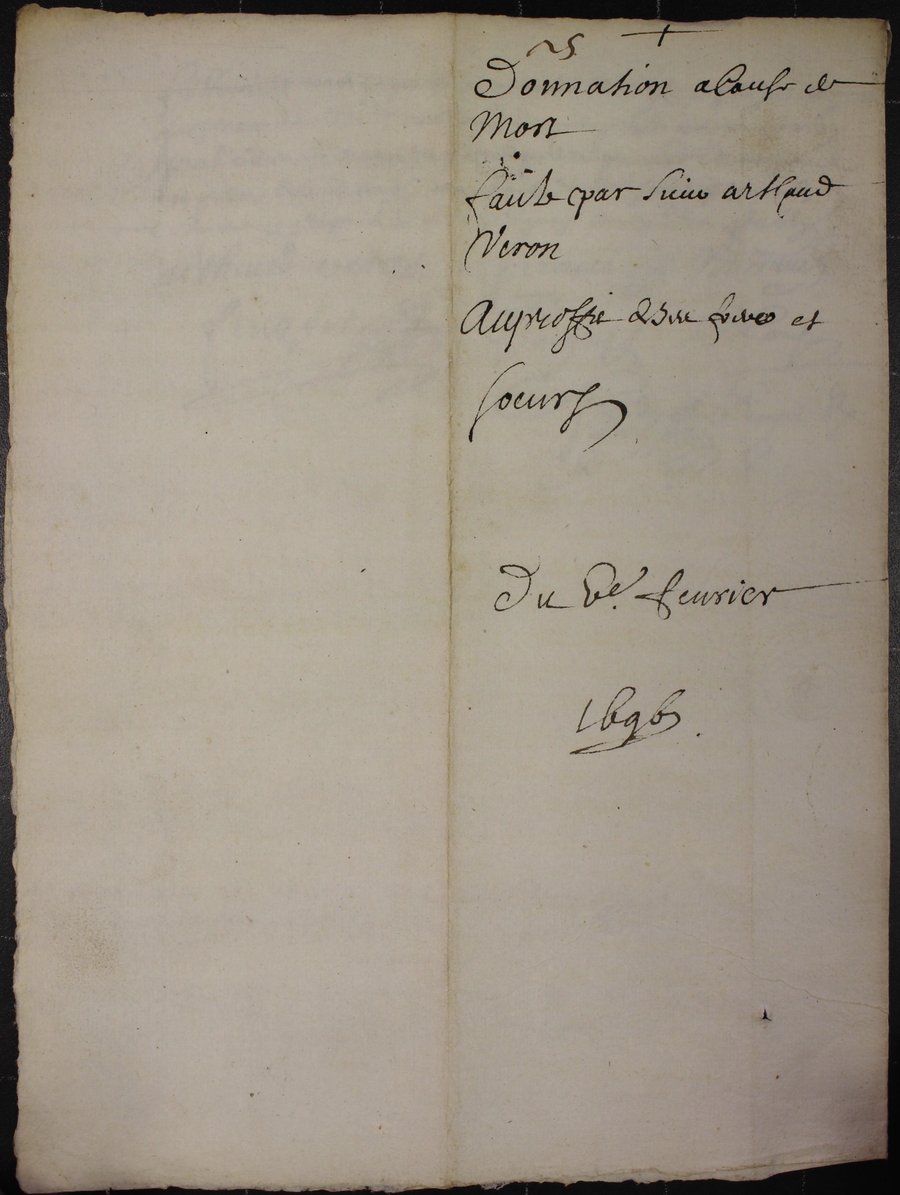 Donnation a Cause de
Mort
faite par arthaud
Veron
Auproffit frere et
soeurs
Du Ve. feurier
1696